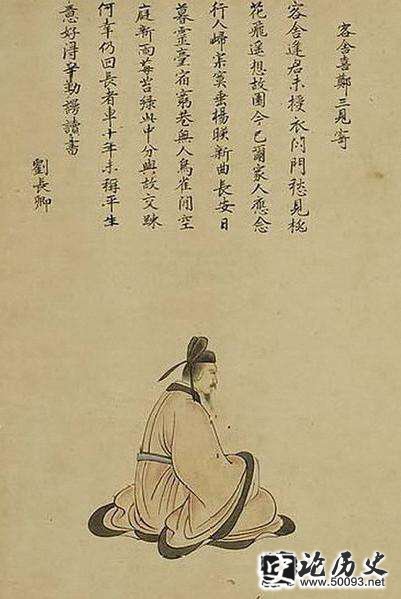 客舍喜鄭三見寄
客舍逢君未授衣閉門愁見桃
花飛遥想故園今已爾家人應念
行人歸寂寞垂楊映新曲長安日
暮靈臺宿窮巷無人鳥雀閒空
庭新雨莓苔緑此中分與故交踈
何幸仍回長者車十年未稱平生
意好淂辛勤謾讀書
劉長卿
史论历史
www.50093.net